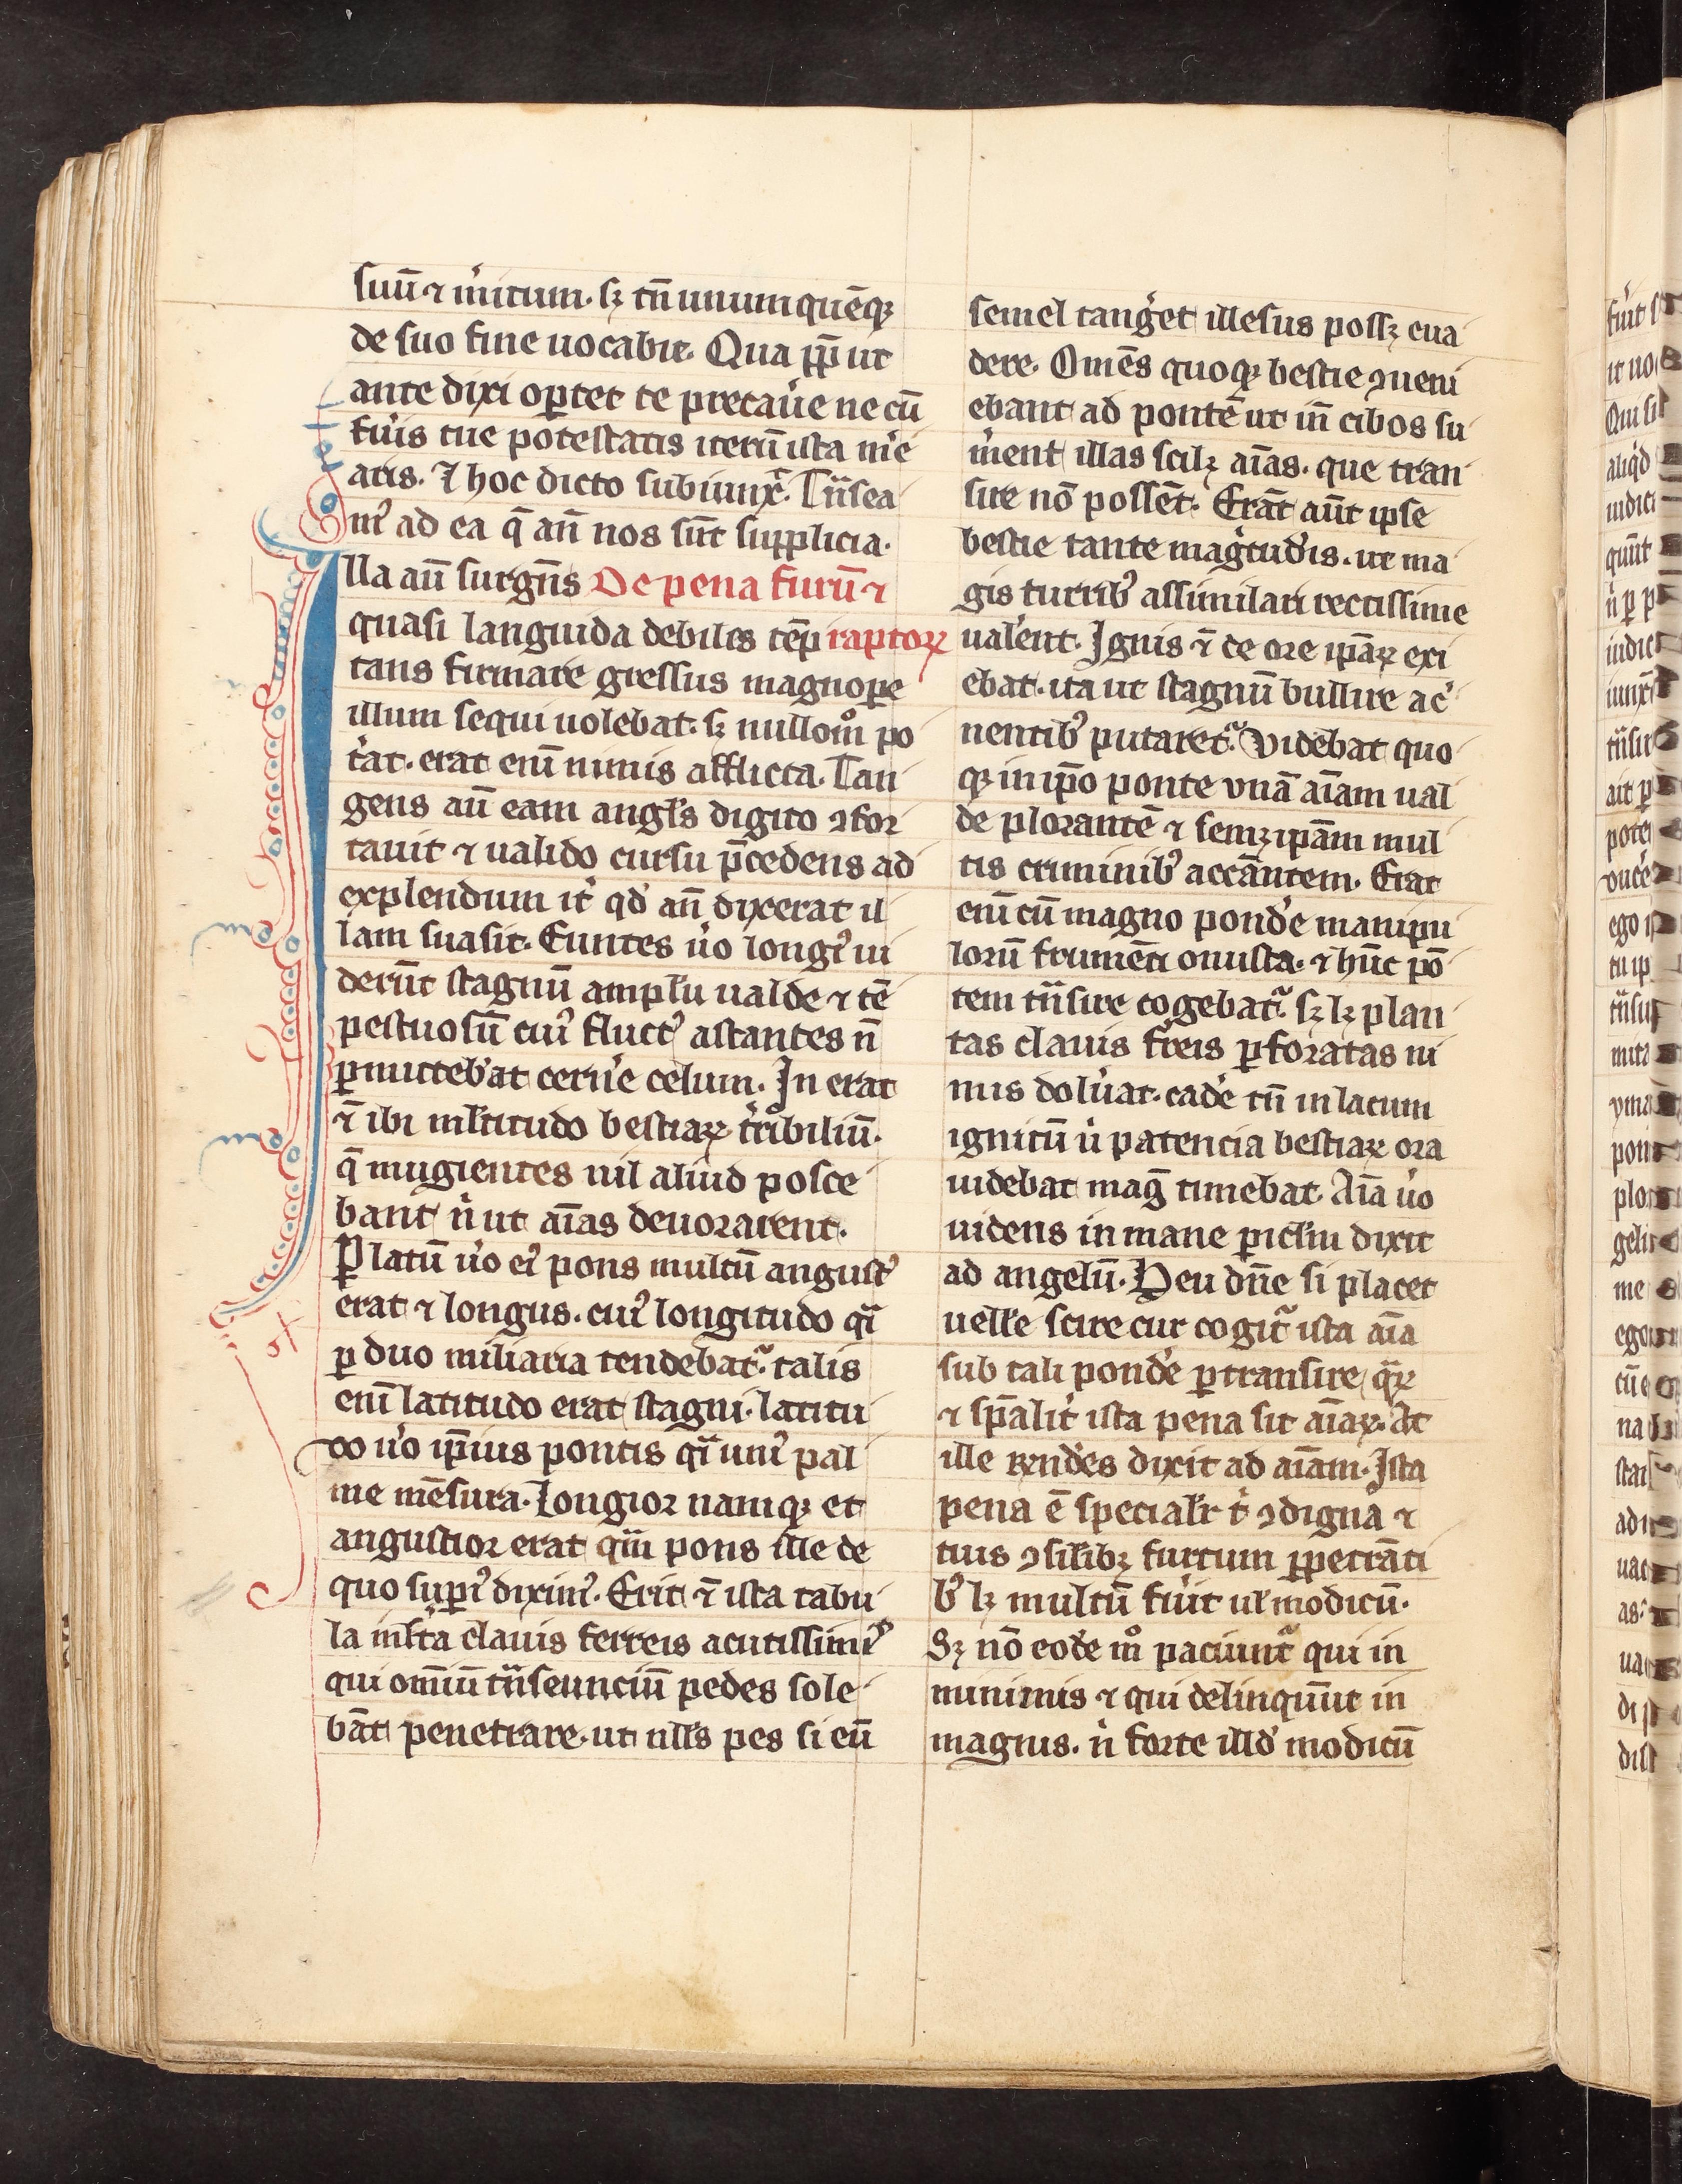 suū ⁊ m̓itum. sꝫ tn̄ unumquēqꝫ
de suo fine uocabit. Qua ꝓp̄ ut
ante dixi oꝑtet te precau̓e ne cū
fu̓is tue potestatis iterū ista m̓e
aris. Et hoc dicto subiunx̓. Tn̄sea
mꝰ ad ea q̄ an̄ nos sūt supplicia.
Illa aū surgn̄s De pena furū ⁊
quasi languida debiles tēp raptoꝝ
tans firmare gressus magnoꝑe
illum sequi uolebat. sꝫ nulloͦm po
t̓at. erat enī nimis afflicta. Tan
gens aū eam angl̓s digito ꝯfor
tauit ⁊ ualido cursu p̄cedens ad
explendum it̓ qd̓ an̄ dixerat il
lam suasit. Euntes u̓o longiꝰ ui
derūt stagnū amplū ualde ⁊ tē
pestuosū cuiꝰ fluctꝰ astantes n̄
ꝑmitteb̓at cern̓e celum. In erat
⁊̄ ibi ml̓titudo bestiaꝝ t̓ribiliū.
q̄ mugientes nil aliud posce
bant n̓ ut aīas deuorarent.
P̱ latū u̓o eiꝰ pons multū angustꝰ
erat ⁊ longus. cuiꝰ longitudo qͣi
ꝑ duo miliaria tendebat᷑. talis
enī latitudo erat stagni. latitu
do u̓o ip̄ius pontis qͣi uniꝰ pal
me mēsura. Longior namqꝫ et
angustior erat qͣm pons ille de
quo supiꝰ diximꝰ. Erit ⁊̄ ista tabu
la ins̓ta clauis ferreis acutissimiꝰ
qui om̄iū tn̄seunciū pedes sole
bāt penetrare. ut nll̓s pes si eū
semel tang̓et illesus possꝫ eua
dere. Omēs quoqꝫ bestie ꝯueni
ebant ad pontē ut in̄ cibos su
m̓ent illas scilꝫ aīas. que tran
sire nō possēt. Erāt aūt ipse
bestie tante magͥtud̓is. ut ma
gis turribꝰ assimilari rectissime
ual̓ent. Ignis ⁊̄ de ore ip̄aꝝ exi
ebat. ita ut stagnū bullire a c̓
nentibꝰ putaret᷑. Videbat quo
qꝫ in ip̄o ponte vnā aīam ual
de plorantē ⁊ semꝫ ipām mul
tis criminibꝰ accāntem. Erat
enī cū magno pond̓e manipu
lorū frumēti onusta. ⁊ hūc pō
tem tn̄sire cogebat᷑. sꝫ lꝫ plan
tas clauis f̓reis ꝑforatas ni
mis dolu̓at. cad̓e tn̄ in lacum
ignitū u̓ patencia bestiaꝝ ora
uidebat mag̓ timebat. Aīa u̓o
uidens in mane pic̓lm dixit
ad angelū. Heu dn̄e si placet
uell̓e scire cur cogit᷑ ista aīa
sub tali pond̓e ꝑtransire. qͣꝝ
⁊ sp̄alit̓ ista pena sit aīaꝝ. At
ille rn̄d̓es dixit ad aīam. Ista
pena ē special̓r t̓ ꝯdigna ⁊
tuis ꝯsil̓ibꝫ furtum ꝑpetrāti
bꝰ lꝫ multū fu̓it ul̓ modicū.
Sꝫ nō eod̓e mͦ paciunt᷑ qui in
minimis ⁊ qui delinqūut in
magnis. n̓ forte illd̓ modicū